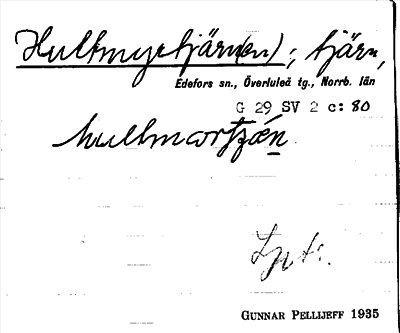 Hultmyrtjärn(en); tjärn,
Edefors sn., Överluleå tg., Norrb. län
G 29 SV 2 c: 80
hultmortjän
GUNNAR PELLIJEFF 1935